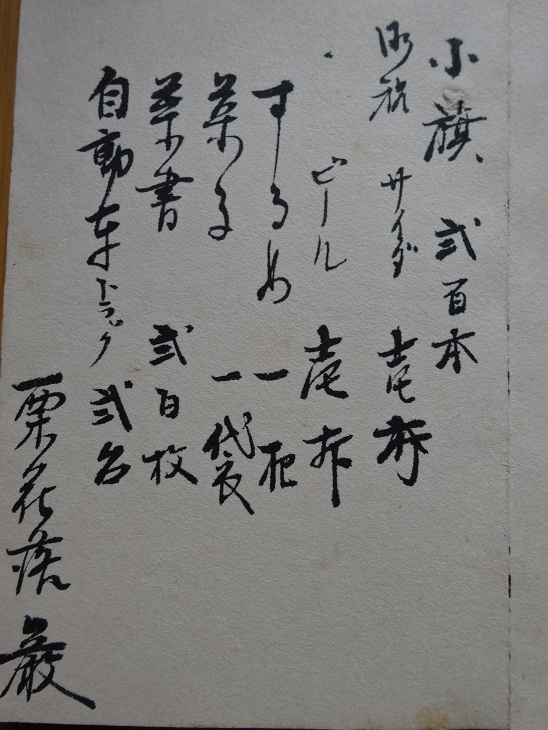 小旗 弐百本
御祝 サイダ 壱打
ビール 壱打
するめ 一把
菓子 一袋
葉書 弐百枚
自動車トラック 弐台
栗花落 巌